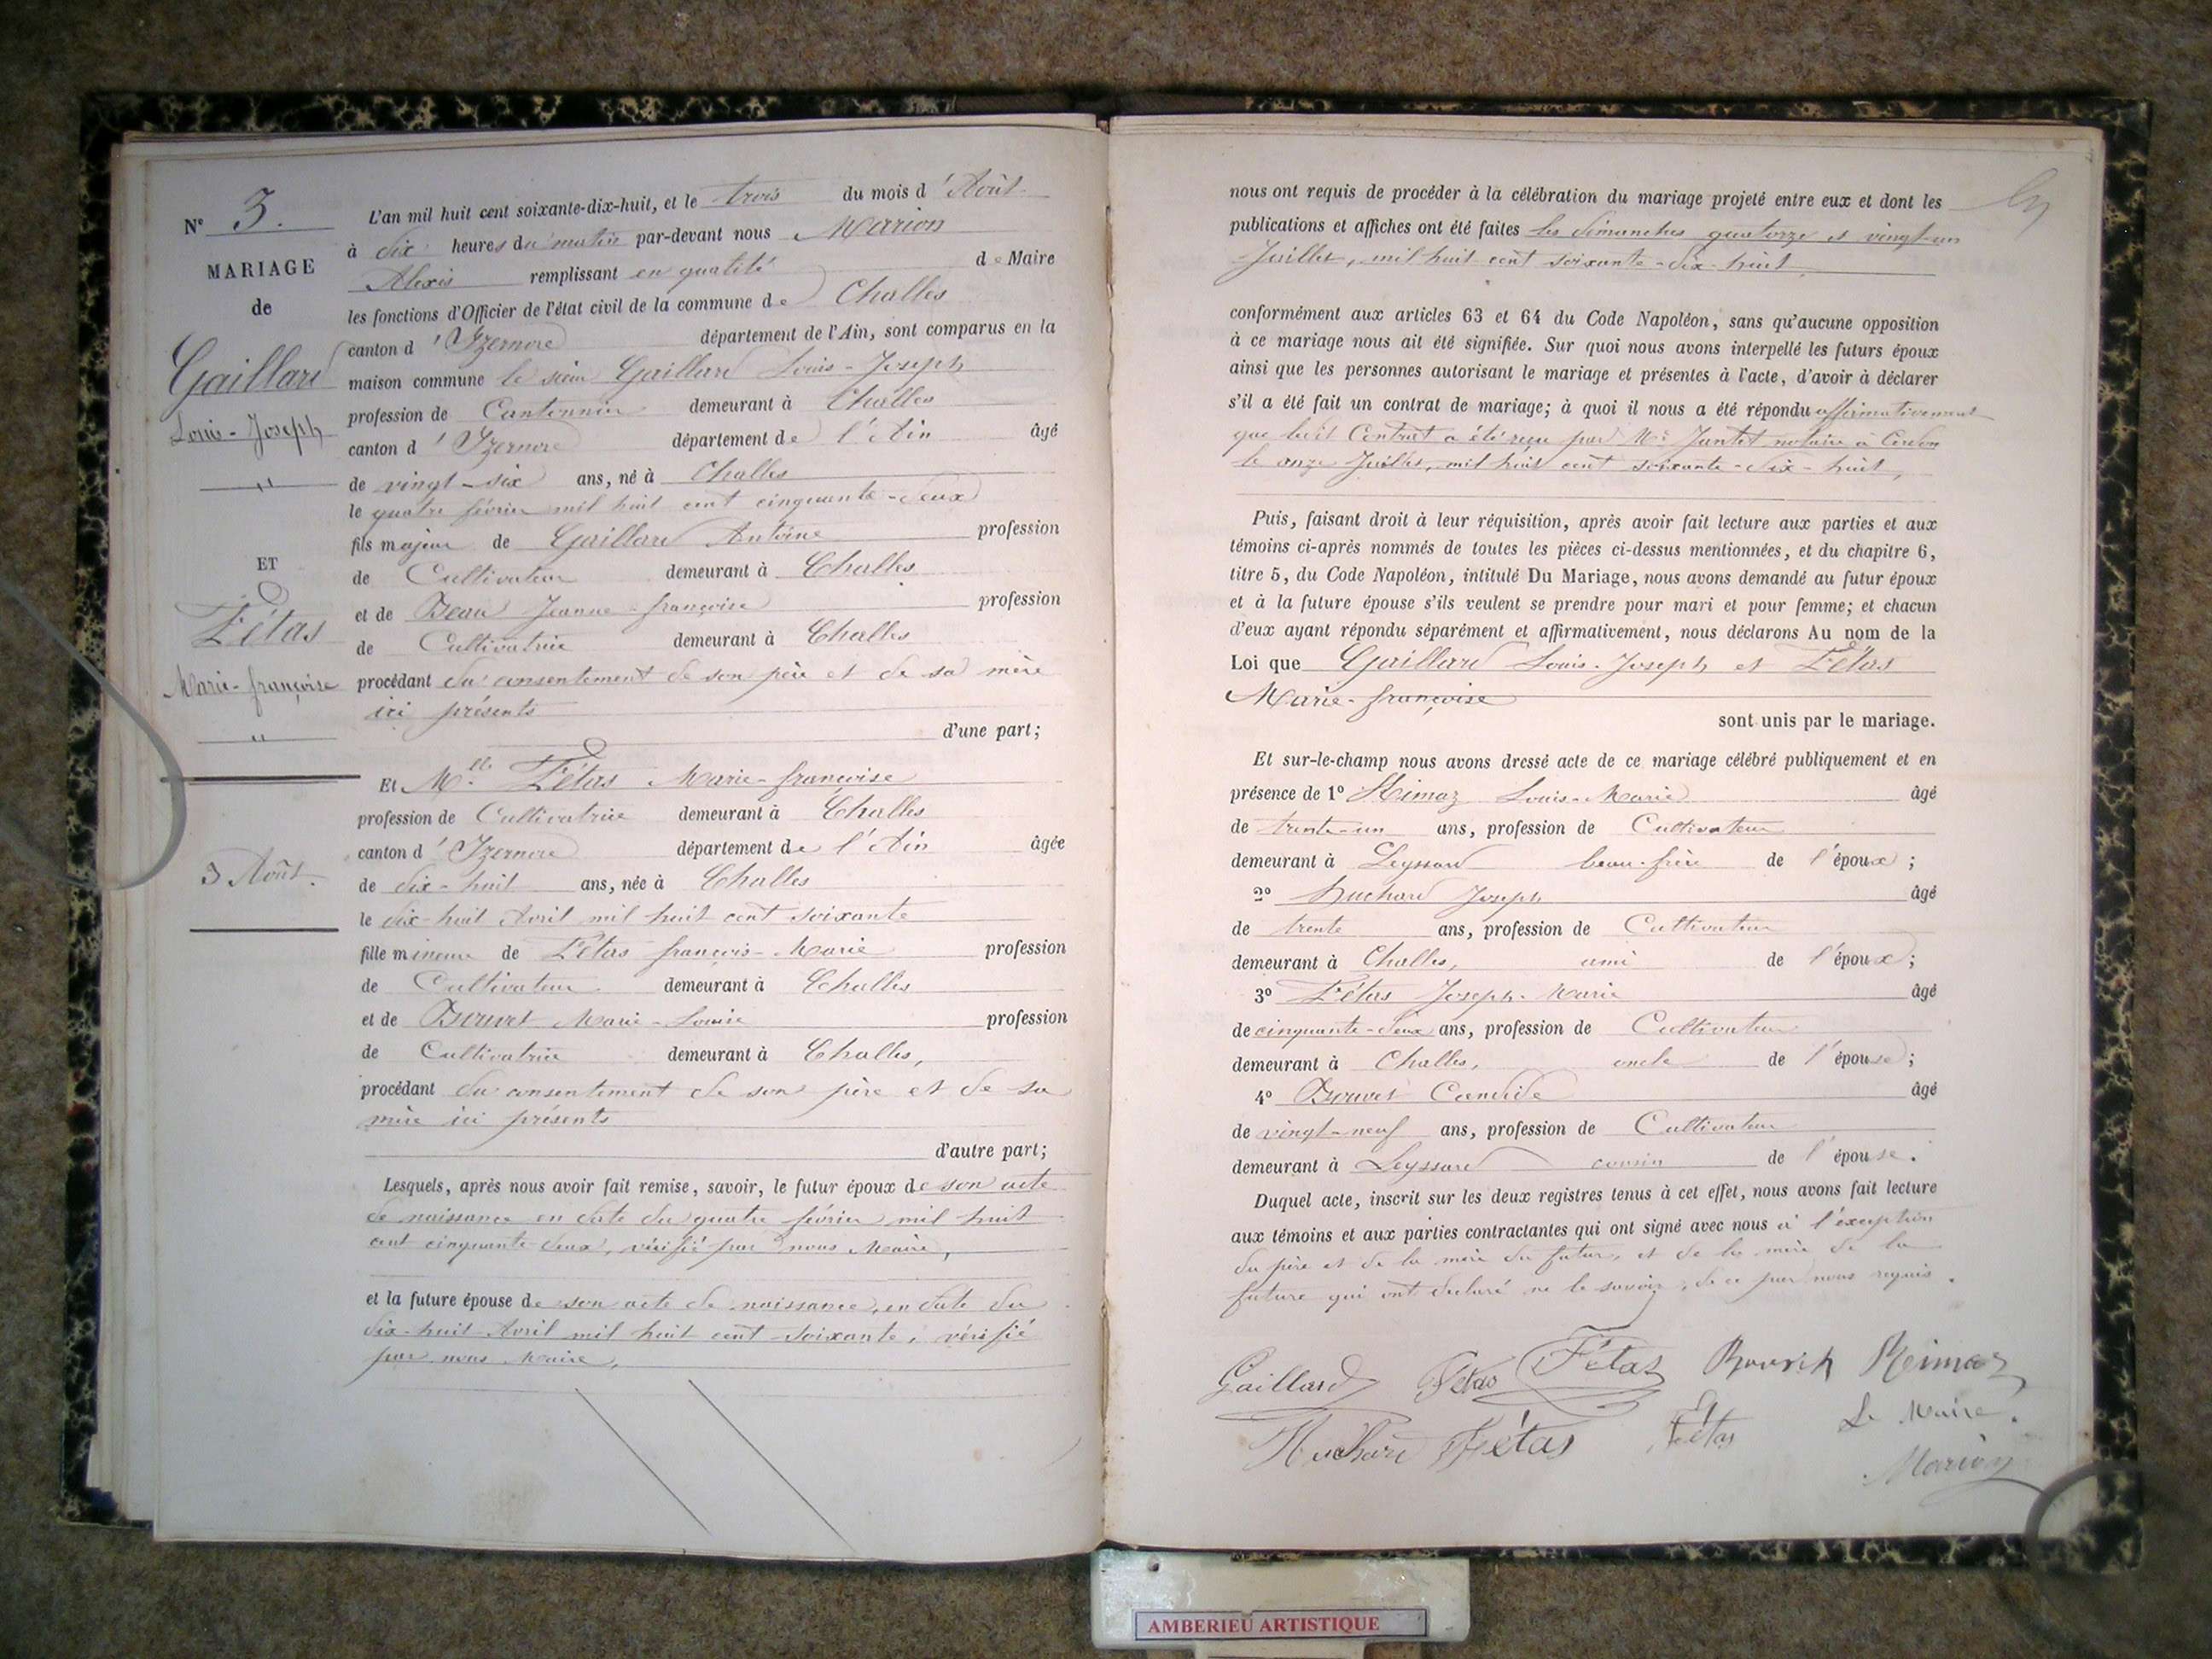 N° 3.
MARIAGE
de
Gaillard
Louis-Joseph
ET
Fétas
Marie-françoise
3 Août.
L'an mil huit cent soixante-dix-huit, et le trois du mois d'Août
à dix heures du matin par-devant nous Marion
Alexis remplissant en qualité de Maire
les fonctions d'Officier de l'état civil de la commune de Challes
canton d'Izernore département de l'Ain, sont comparus en la
maison commune le sieur Gaillard Louis-Joseph
profession de Cantonnier demeurant à Challes
canton d'Izernore département de l'Ain âgé
de vingt-six ans, né à Challes
le quatre février mil huit cent cinquante-deux
fils majeur de Gaillard Antoine profession
de Cultivateur demeurant à Challes
et de Beau Jeanne-françoise profession
de Cultivatrice demeurant à Challes
procédant du consentement de son père et de sa mère
ici présents
d'une part;
Et Mlle Fétas Marie-françoise
profession de Cultivatrice demeurant à Challes
canton d'Izernore département de l'Ain âgée
de dix-huit ans, née à Challes
le dix-huit Avril mil huit cent soixante
fille mineure de Fétas françois-Marie profession
de Cultivateur demeurant à Challes
et de Bouvet Marie-Louise profession
de Cultivatrice demeurant à Challes,
procédant du consentement de son père et de sa
mère ici présents
d'autre part;
Lesquels, après nous avoir fait remise, savoir, le futur époux de son acte
de naissance en date du quatre février mil huit
cent cinquante deux, vérifié par nous Maire,
et la future épouse de son acte de naissance, en date du
dix-huit Avril mil huit cent soixante, vérifié
par nous Maire,
nous ont requis de procéder à la célébration du mariage projeté entre eux et dont les
publications et affiches ont été faites les dimanches quatorze et vingt-un
Juillet, mil huit cent soixante-dix-huit,
conformément aux articles 63 et 64 du Code Napoléon, sans qu'aucune opposition
à ce mariage nous ait été signifiée. Sur quoi nous avons interpellé les futurs époux
ainsi que les personnes autorisant le mariage et présentes à l'acte, d'avoir à déclarer
s'il a été fait un contrat de mariage; à quoi il nous a été répondu affirmativement
que ledit Contrat a été reçu par Me Jantet notaire à Cerdon
le onze Juillet, mil huit cent soixante-dix-huit,
Puis, faisant droit à leur réquisition, après avoir fait lecture aux parties et aux
témoins ci-après nommés de toutes les pièces ci-dessus mentionnées, et du chapitre 6,
titre 5, du Code Napoléon, intitulé Du Mariage, nous avons demandé au futur époux
et à la future épouse s'ils veulent se prendre pour mari et pour femme; et chacun
d'eux ayant répondu séparément et affirmativement, nous déclarons Au nom de la
Loi que Gaillard Louis-Joseph et Fétas
Marie-françoise
sont unis par le mariage.
Et sur-le-champ nous avons dressé acte de ce mariage célébré publiquement et en
présence de 1° Rimaz Louis-Marie âgé
de trente-un ans, profession de Cultivateur
demeurant à Leyssard beau-frère de l'époux;
2° Huchard Joseph âgé
de trente ans, profession de Cultivateur
demeurant à Challes, ami de l'époux;
3° Fétas Joseph-Marie âgé
de cinquante-deux ans, profession de Cultivateur
demeurant à Challes, oncle de l'épouse;
4° Bouvet Candide âgé
de vingt-neuf ans, profession de Cultivateur
demeurant à Leyssard cousin de l'épouse.
Duquel acte, inscrit sur les deux registres tenus à cet effet, nous avons fait lecture
aux témoins et aux parties contractantes qui ont signé avec nous à l'exception
du père et de la mère du futur, et de la mère de la
future qui ont déclaré ne le savoir, de ce par nous requis.
Gaillard Fétas Fétaz Reimaz
Huchard Fétas Fétas Le Maire.
Marion
AMBERIEU ARTISTIQUE